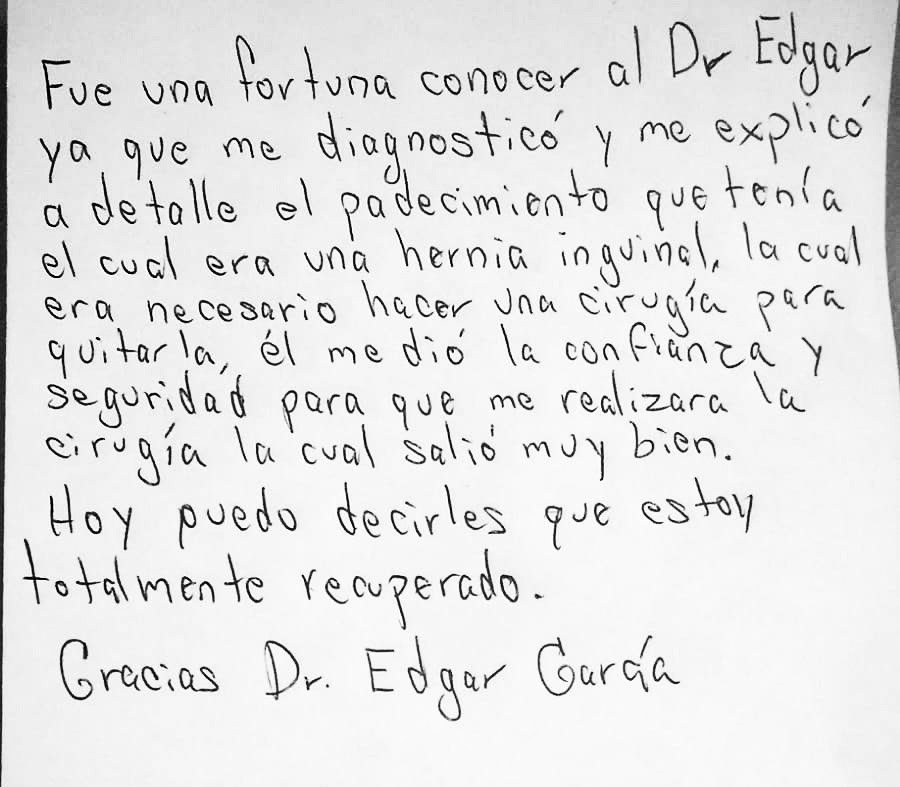 Fue una fortuna conocer al Dr Edgar
ya que me diagnosticó y me explicó
a detalle el padecimiento que tenía
el cual era una hernia inguinal, la cual
era necesario hacer una cirugía para
quitarla, él me dió la confianza y
seguridad para que me realizara la
cirugía la cual salió muy bien.
Hoy puedo decirles que estoy
totalmente recuperado.
Gracias Dr. Edgar García